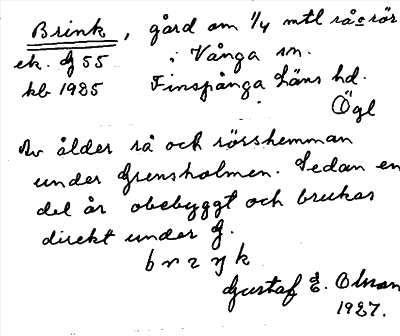 Brink, gård om 1/4 mtl rå o rör
ek. G 55 i Vånga sn.
kb 1925 Finspånga Läns hd.
Ögl
Av ålder rå och rörshemman
under Grensholmen. Sedan en
del år obebyggt och brukas
direkt under G.
brɪŋk
Gustaf E. Olsson
1927.